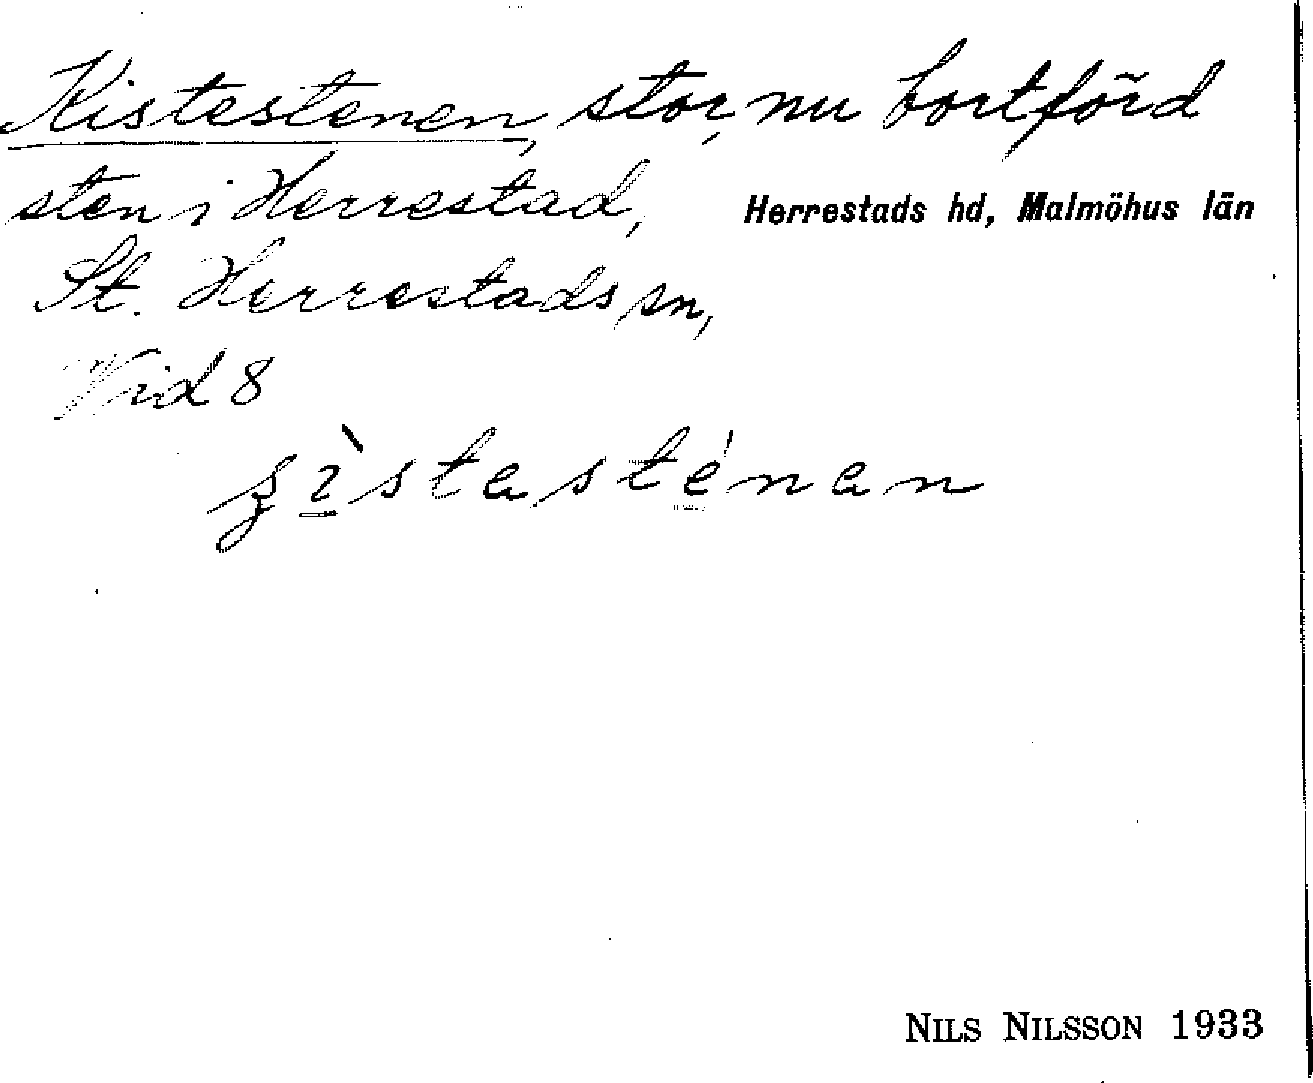 Kistestenen, stor, nu bortförd
sten i Herrestad,
Herrestads hd, Malmöhus län
St. Herrestads sn,
Vid 8
NILS NILSSON 1933